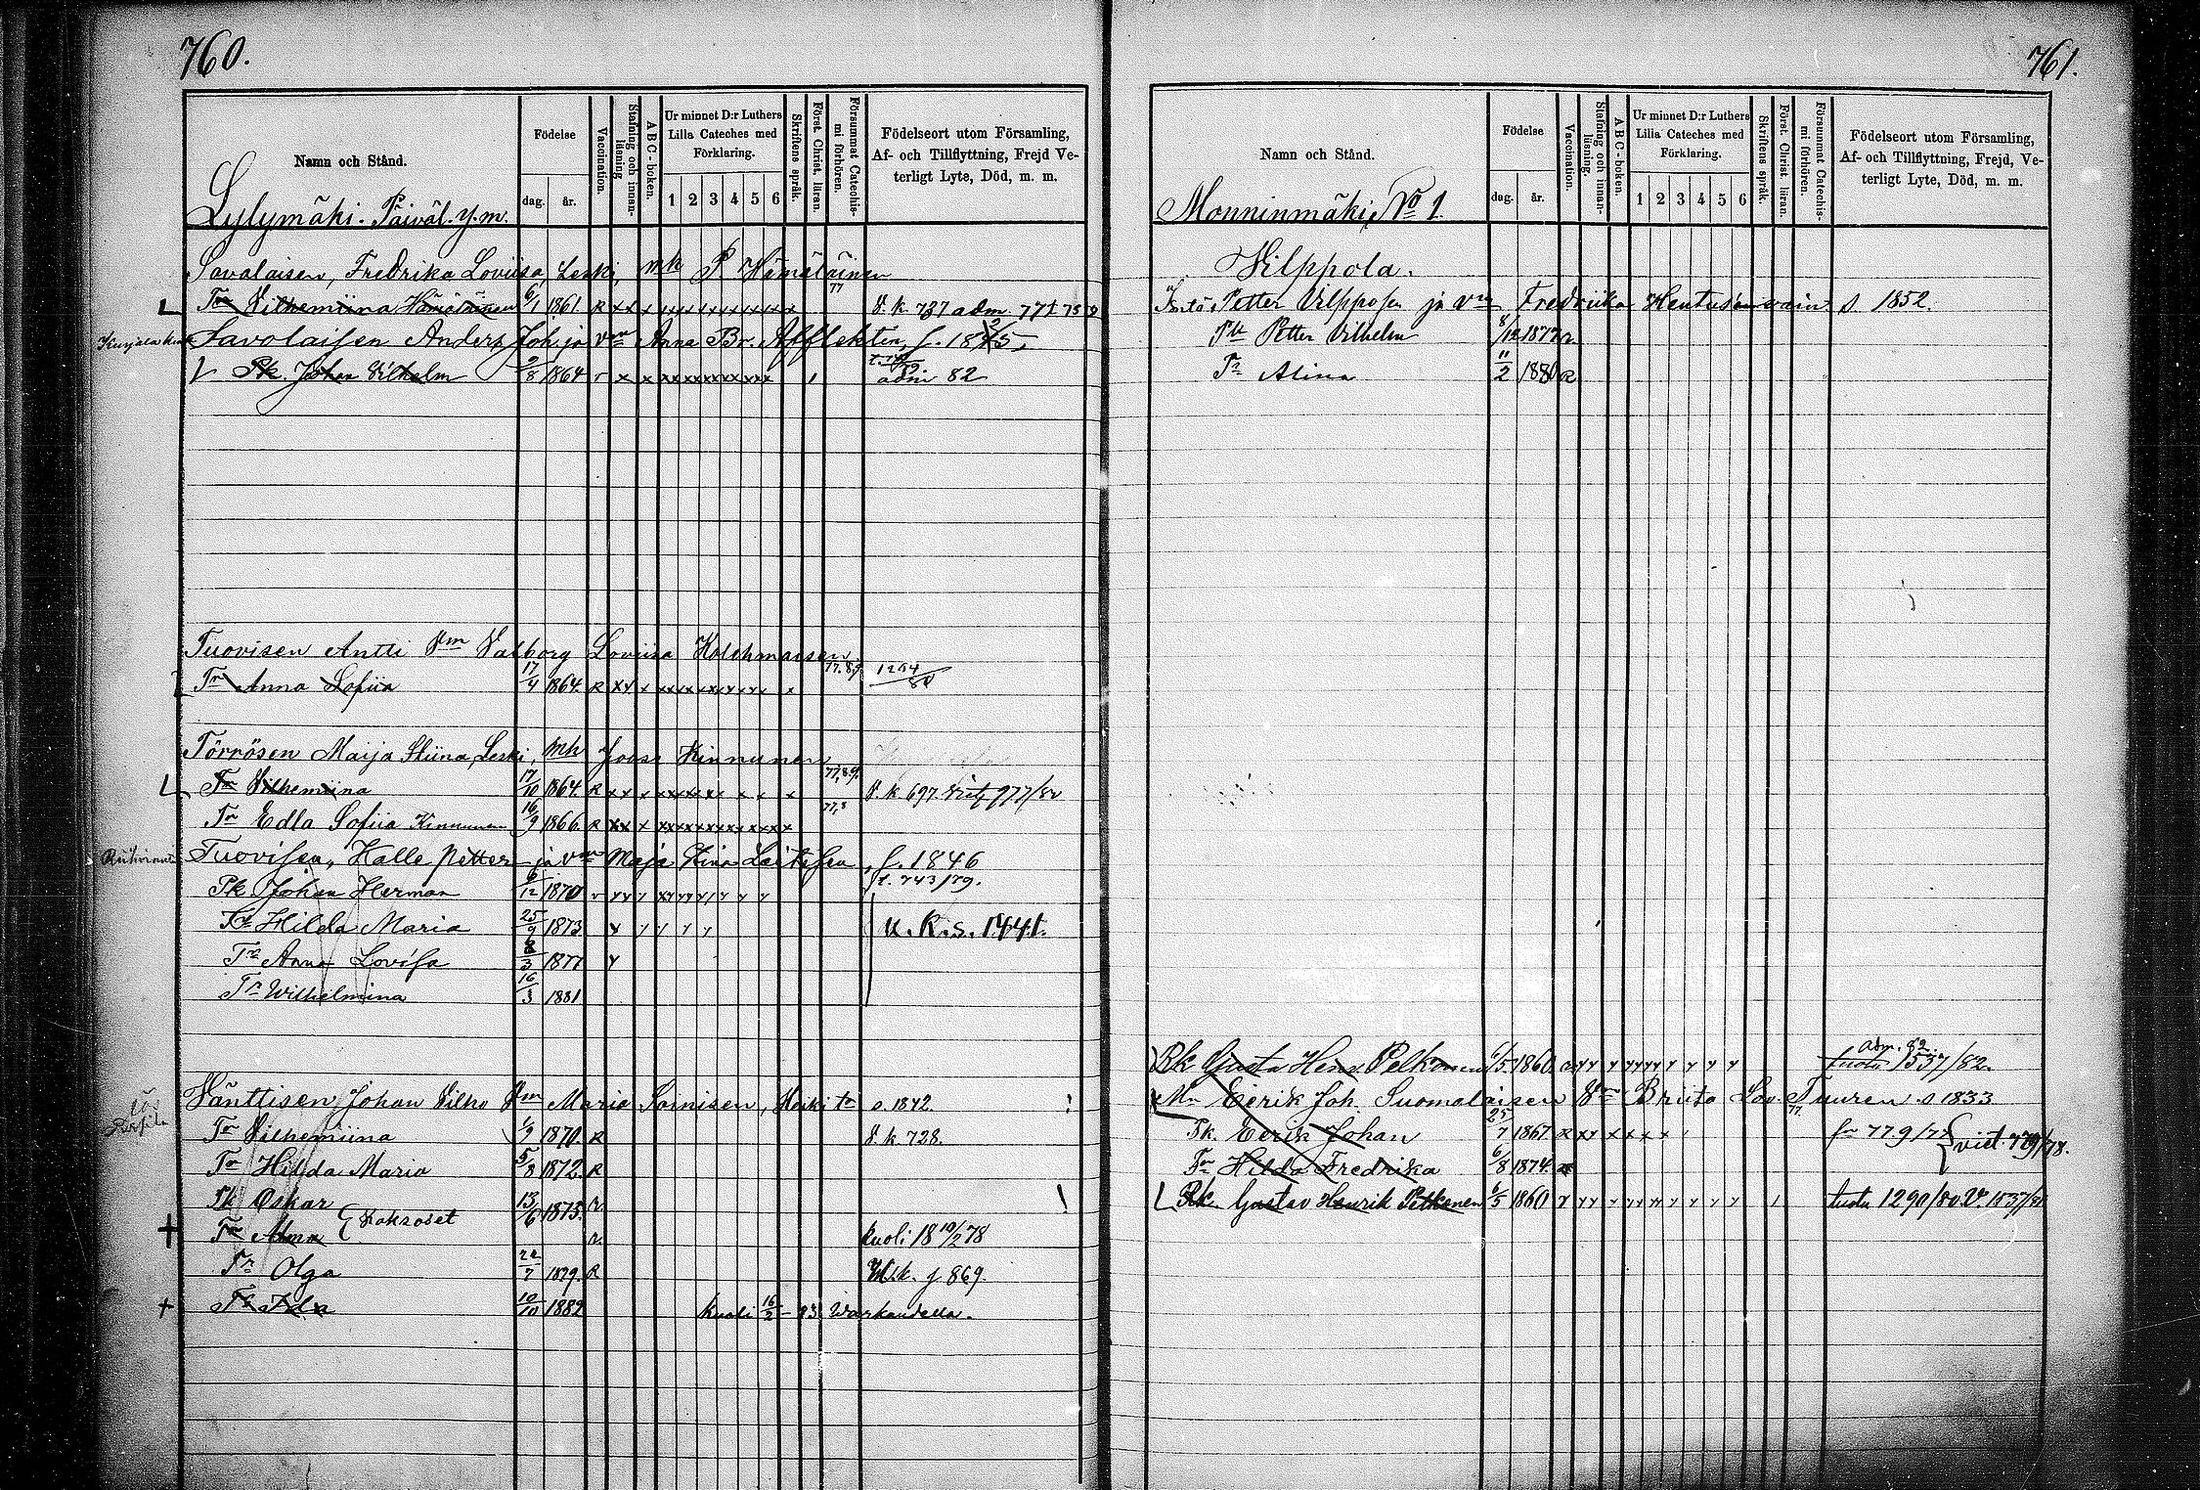 760.
Namn och Stånd.
Födelse
dag. år.
Vaccination.
Stafning och innan-läsning
ABC-boken.
Ur minnet D:r Luthers Lilla Cateches med Förklaring.
1 2 3 4 5 6
Skriftens språk.
Först. Christ. läran.
Försummat Catechis-mi förhören.
Födelseort utom Församling,
Af- och Tillflyttning, Frejd Ve-
terligt Lyte, Död, m. m.
Lylymäki. Päiväl. y.m.
Savalaisen, Fredrika Loviisa, Leski, mk P Hämäläinen
Tr Vilhemiina Hämäläinen 6/1 1861. R 77 S. k 737 adm 771
Savolaisen Anders Joh. ja Vm Anna Br. Afflektin, f.
Pk. Johan Vilhelm 9/8 1864 adm 82
Tuovisen Antti Vm Valborg Loviisa Kolehmaisen
Tr Anna Sofiia 17/4 1864. R 77.89 1264/84
Törrösen Maija Stiina, Leski, mk Joos. Kinnunen
Tr Vilhemiina 17/10 1864. R 77,89. S. k 697
Tr Edla Sofiia Kinnunen 16/9 1866. R
Tuovisen, Kalle Petter ja Vm Maja Stina Laitisen, f. 1846
Pk Johan Herman 6/12 1870 t. 743/79.
Tr Hilda Maria 25/9 1873 u. k. s. 1441.
Tr Anna Lovisa 8/3 1877
Tr Wilhelmina 16/3 1881
Hänttisen Johan Vilho Vm Maria Sornisen, Heiki tr s. 1842.
Tr Vilhemiina 1/9 1870. R S. k 728.
Tr Hilda Maria 5/8 1872. R
Pk Oskar 13/6 1875. Kaksoset
Tr Alma kuoli 18 19/2 78
Tr Olga 22/7 1879. R
Tr Ida 10/10 1882 kuoli 16/2 - 83 Warkaudella.
761.
Namn och Stånd.
Födelse
dag. år.
Vaccination.
Stafning och innan-läsning.
ABC-boken.
Ur minnet D:r Luthers Lilla Cateches med Förklaring.
1 2 3 4 5 6
Skriftens språk.
Först. Christ. läran.
Försummat Catechis-mi förhören.
Födelseort utom Församling,
Af- och Tillflyttning, Frejd, Ve-
terligt Lyte, Död, m. m.
Monninmäki, No 1.
Vilppola.
Petter Vilpposen ja Vm Fredriika s. 1852.
Pk Petter Vilhelm 8/12 1877
Tr Alina 11/2 1880 R
Rk Gusta Henr. Pelkonen 6/5 1860. adm. 82. tuotu 1537/82.
Mn Eerik Joh. Suomalaisen Vm Briita Lov. Tuuren s 1833
Pk. Eerik Johan 25/7 1867 R 77 fr 779/77 viet. 779/78.
Tr Hilda Fredrika 6/8 1874.
Rk. Gustav Henrik Pelkonen 6/5 1860 tuotu 1290/80. V. 1537/81